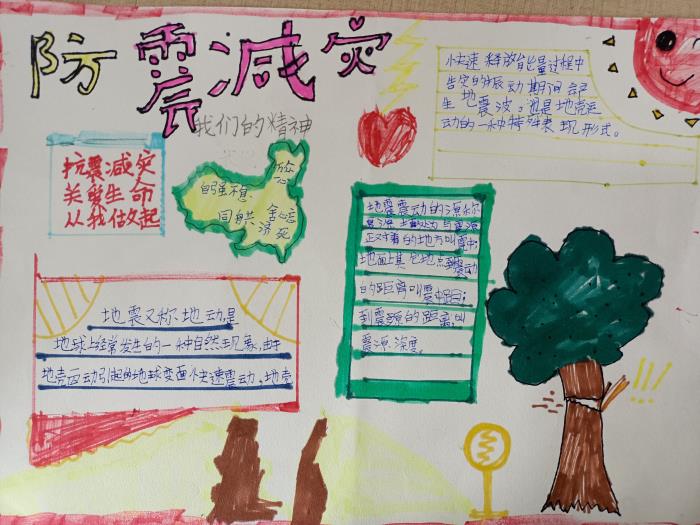 防震减灾
我们的精神
抗震减灾
关爱生命
从我做起
自强不息
同舟共济
地震又称地动是
地球上经常发生的一种自然现象,由于
地壳运动引起的地球表面快速震动、地壳
快速释放能量过程中
生地震波。也是地壳运
动的一种特殊表现形式。
地震震动的源称
正对着的地方叫震中;
地面上其它地点到震动
的距离叫震中距;
到震源的距离叫
震源深度。